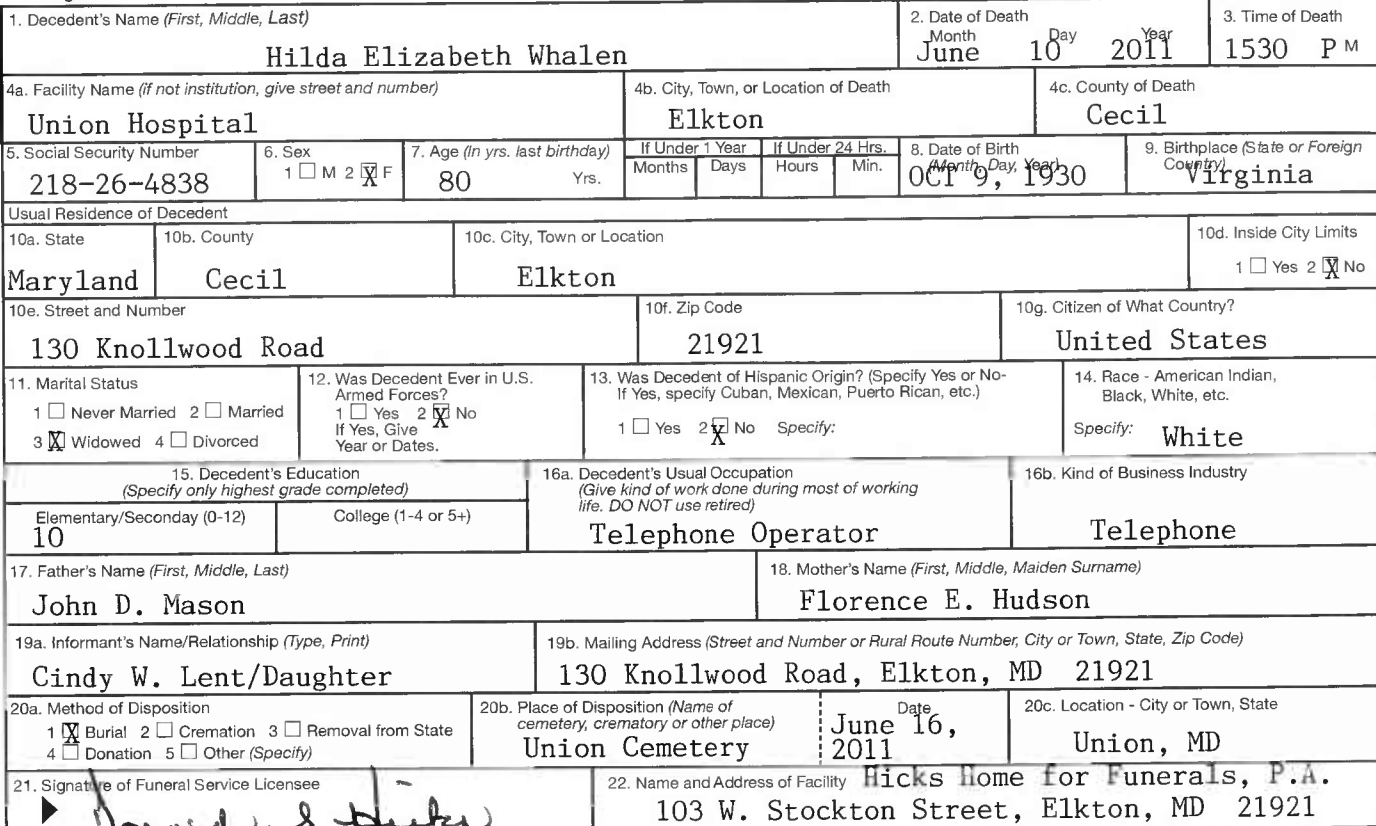 1. Decedent's Name (First, Middle, Last)
Hilda Elizabeth Whalen
2. Date of Death
Month Day Year
June 10 2011
3. Time of Death
1530 P M
4a. Facility Name (if not institution, give street and number)
Union Hospital
4b. City, Town, or Location of Death
Elkton
4c. County of Death
Cecil
5. Social Security Number
218-26-4838
6. Sex
1 ☐ M 2 ☒ F
7. Age (In yrs. last birthday)
80 Yrs.
If Under 1 Year
Months Days
If Under 24 Hrs.
Hours Min.
8. Date of Birth
(Month, Day, Year)
OCT 9, 1930
9. Birthplace (State or Foreign
Country)
Virginia
Usual Residence of Decedent
10a. State
Maryland
10b. County
Cecil
10c. City, Town or Location
Elkton
10d. Inside City Limits
1 ☐ Yes 2 ☒ No
10e. Street and Number
130 Knollwood Road
10f. Zip Code
21921
10g. Citizen of What Country?
United States
11. Marital Status
1 ☐ Never Married 2 ☐ Married
3 ☒ Widowed 4 ☐ Divorced
12. Was Decedent Ever in U.S.
Armed Forces?
1 ☐ Yes 2 ☒ No
If Yes, Give
Year or Dates.
13. Was Decedent of Hispanic Origin? (Specify Yes or No-
If Yes, specify Cuban, Mexican, Puerto Rican, etc.)
1 ☐ Yes 2 ☒ No Specify:
14. Race - American Indian,
Black, White, etc.
Specify: White
15. Decedent's Education
(Specify only highest grade completed)
Elementary/Seconday (0-12)
10
College (1-4 or 5+)
16a. Decedent's Usual Occupation
(Give kind of work done during most of working
life. DO NOT use retired)
Telephone Operator
16b. Kind of Business Industry
Telephone
17. Father's Name (First, Middle, Last)
John D. Mason
18. Mother's Name (First, Middle, Maiden Surname)
Florence E. Hudson
19a. Informant's Name/Relationship (Type, Print)
Cindy W. Lent/Daughter
19b. Mailing Address (Street and Number or Rural Route Number, City or Town, State, Zip Code)
130 Knollwood Road, Elkton, MD 21921
20a. Method of Disposition
1 ☒ Burial 2 ☐ Cremation 3 ☐ Removal from State
4 ☐ Donation 5 ☐ Other (Specify)
20b. Place of Disposition (Name of
cemetery, crematory or other place)
Union Cemetery
Date
June 16,
2011
20c. Location - City or Town, State
Union, MD
21. Signature of Funeral Service Licensee
22. Name and Address of Facility Hicks Home for Funerals, P.A.
103 W. Stockton Street, Elkton, MD 21921